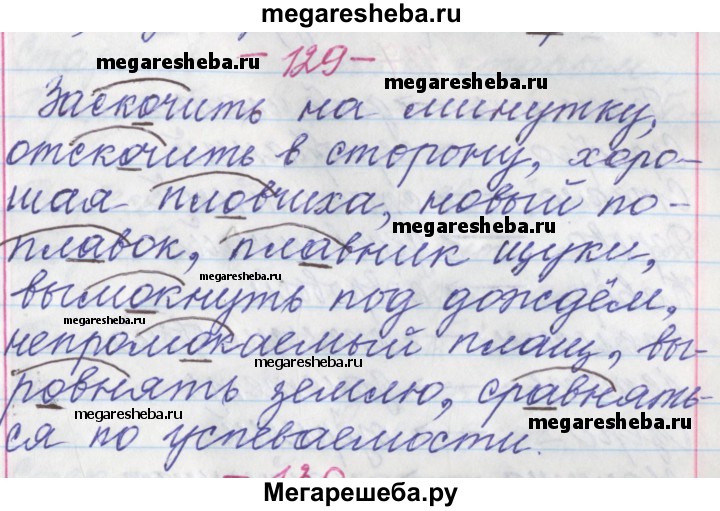 megaresheba.ru
- 129 -
megaresheba.ru
megaresheba.ru
Заскочить на минутку,
отскочить в сторону, хоро-
шая пловчиха, новый по-
megaresheba.ru
плавок, плавник щуки,
megaresheba.ru
вымокнуть под дождём,
megaresheba.ru
непромокаемый плащ, вы-
megaresheba.ru
ровнять землю, сравнять-
megaresheba.ru
megaresheba.ru
ся по успеваемости.
- 130
Мегарешеба.ру